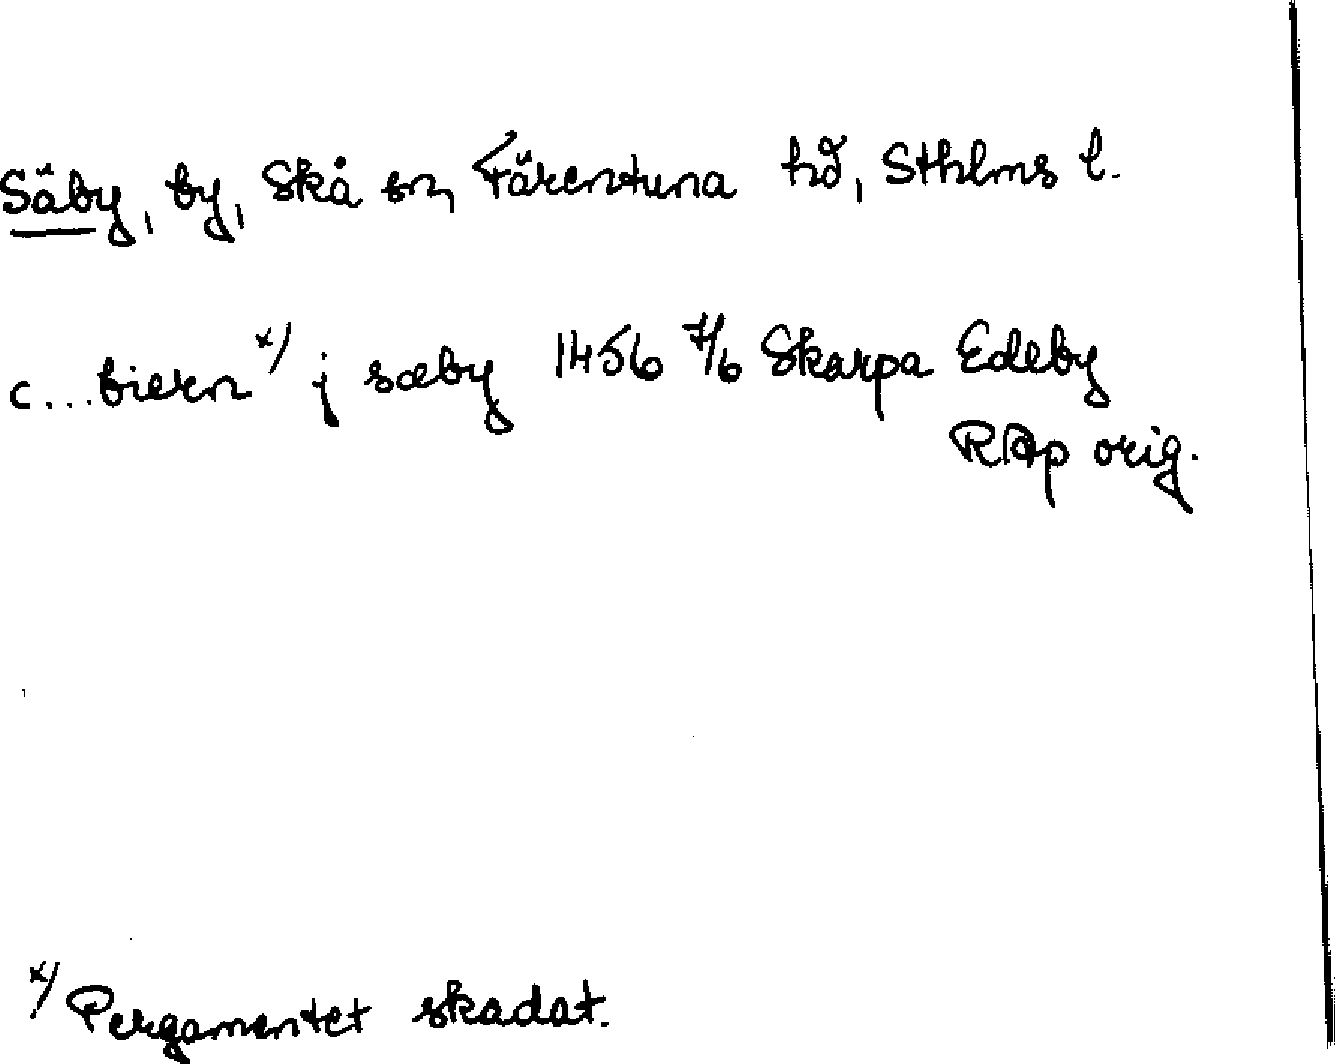 Säby, by, Skå sn, Färentuna hd, Sthlms l.
c...biern x) j sæby 1456 7/6 Skarpa Edeby
RAp orig.
x) Pergamentet skadat.